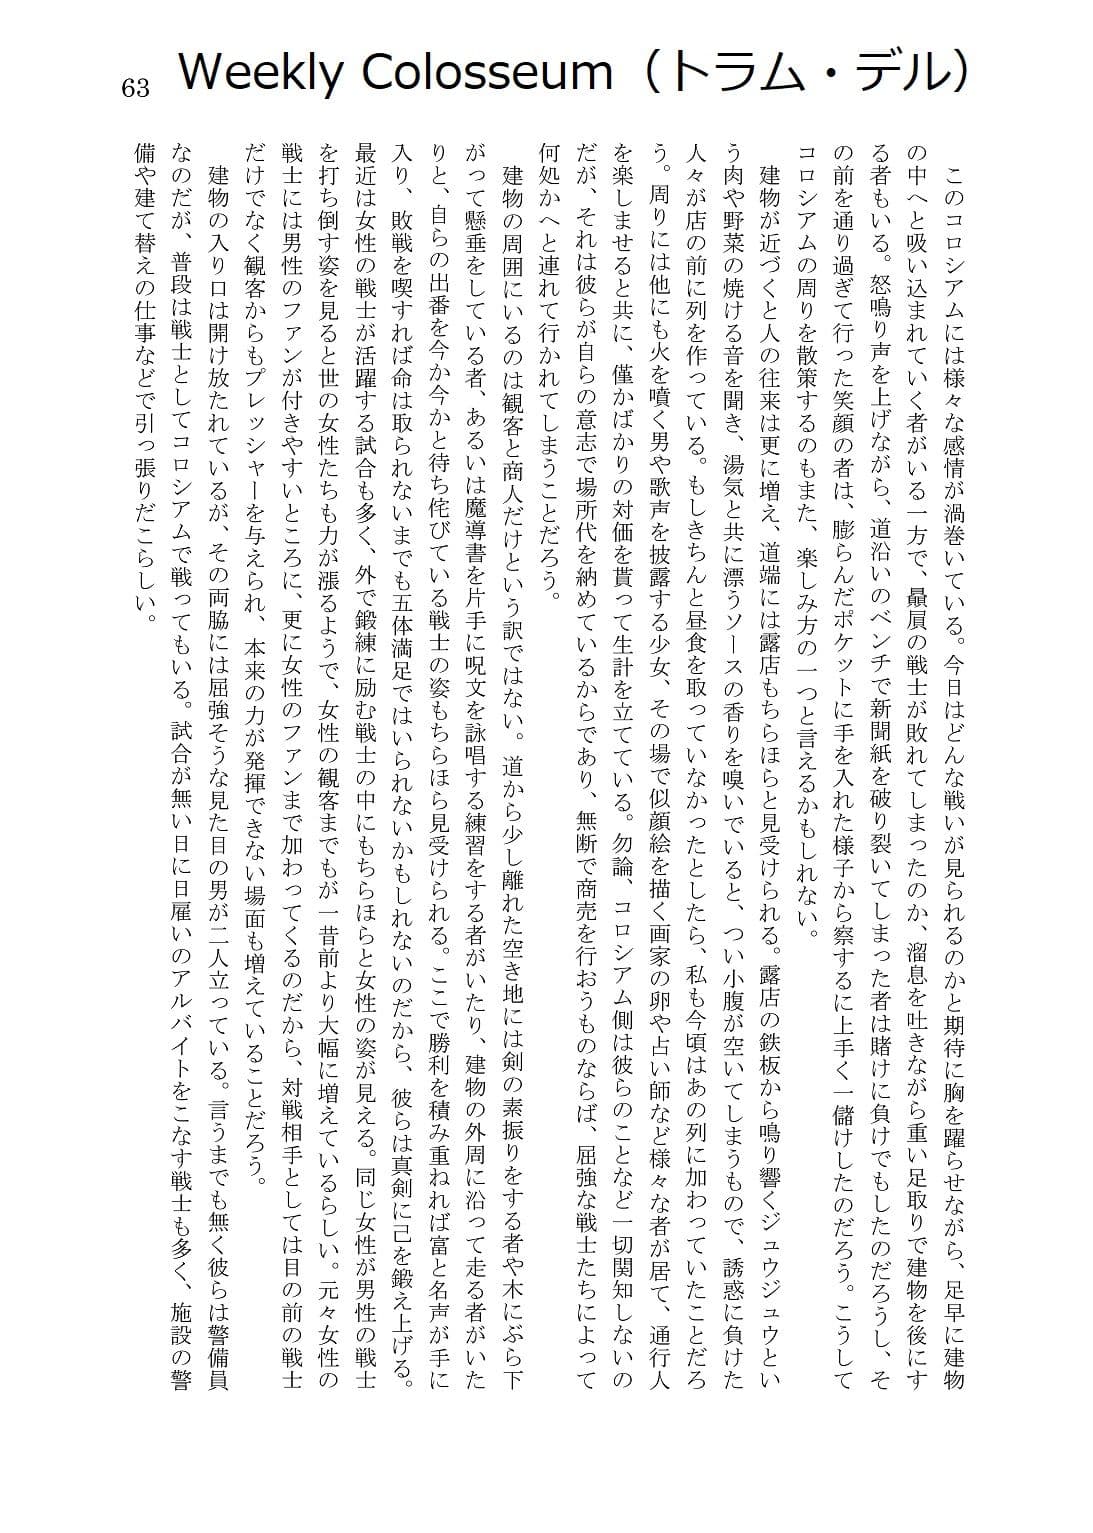 63
Weekly Colosseum（トラム・デル）
このコロシアムには様々な感情が渦巻いている。今日はどんな戦いが見られるのかと期待に胸を躍らせながら、足早に建物
の中へと吸い込まれていく者がいる一方で、贔屓の戦士が敗れてしまったのか、溜息を吐きながら重い足取りで建物を後にす
る者もいる。怒鳴り声を上げながら、道沿いのベンチで新聞紙を破り裂いてしまった者は賭けに負けでもしたのだろうし、そ
の前を通り過ぎて行った笑顔の者は、膨らんだポケットに手を入れた様子から察するに上手く一儲けしたのだろう。こうして
コロシアムの周りを散策するのもまた、楽しみ方の一つと言えるかもしれない。
建物が近づくと人の往来は更に増え、道端には露店もちらほらと見受けられる。露店の鉄板から鳴り響くジュウジュウとい
う肉や野菜の焼ける音を聞き、湯気と共に漂うソースの香りを嗅いでいると、つい小腹が空いてしまうもので、誘惑に負けた
人々が店の前に列を作っている。もしきちんと昼食を取っていなかったとしたら、私も今頃はあの列に加わっていたことだろ
う。周りには他にも火を噴く男や歌声を披露する少女、その場で似顔絵を描く画家の卵や占い師など様々な者が居て、通行人
を楽しませると共に、僅かばかりの対価を貰って生計を立てている。勿論、コロシアム側は彼らのことなど一切関知しないの
だが、それは彼らが自らの意志で場所代を納めているからであり、無断で商売を行おうものならば、屈強な戦士たちによって
何処かへと連れて行かれてしまうことだろう。
建物の周囲にいるのは観客と商人だけという訳ではない。道から少し離れた空き地には剣の素振りをする者や木にぶら下
がって懸垂をしている者、あるいは魔導書を片手に呪文を詠唱する練習をする者がいたり、建物の外周に沿って走る者がいた
りと、自らの出番を今か今かと待ち侘びている戦士の姿もちらほら見受けられる。ここで勝利を積み重ねれば富と名声が手に
入り、敗戦を喫すれば命は取られないまでも五体満足ではいられないかもしれないのだから、彼らは真剣に己を鍛え上げる。
最近は女性の戦士が活躍する試合も多く、外で鍛練に励む戦士の中にもちらほらと女性の姿が見える。同じ女性が男性の戦士
を打ち倒す姿を見ると世の女性たちも力が漲るようで、女性の観客までもが一昔前より大幅に増えているらしい。元々女性の
戦士には男性のファンが付きやすいところに、更に女性のファンまで加わってくるのだから、対戦相手としては目の前の戦士
だけでなく観客からもプレッシャーを与えられ、本来の力が発揮できない場面も増えていることだろう。
建物の入り口は開け放たれているが、その両脇には屈強そうな見た目の男が二人立っている。言うまでも無く彼らは警備員
なのだが、普段は戦士としてコロシアムで戦ってもいる。試合が無い日に日雇いのアルバイトをこなす戦士も多く、施設の警
備や建て替えの仕事などで引っ張りだこらしい。